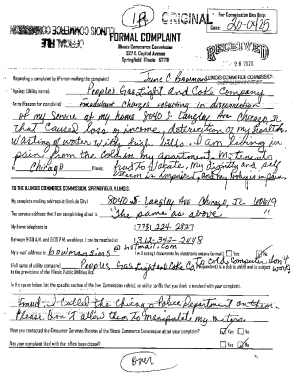 I.R.
ORIGINAL
For Commission Use Only:
Case: 20-0425
ILLINOIS COMMERCE COMMISSION
OFFICIAL FILE
FORMAL COMPLAINT
Illinois Commerce Commission
527 E. Capitol Avenue
Springfield, Illinois
RECEIVED
ILLINOIS COMMERCE COMMISSION
Regarding a complaint by (Person making the complaint): June C. Bowman
Against (Utility name): Peoples Gas Light and Coke Company
As to (Reason for complaint) fraudulent charges resulting in disconnection
of my service of my home 8040 S Langley Ave Chicago, IL
that caused loss of income, deterioration of my health
Wasting of water with high bills. I am living in
pain from the cold in my apartment. My tenants
in Chicago Illinois.
TO THE ILLINOIS COMMERCE COMMISSION, SPRINGFIELD, ILLINOIS:
My complete mailing address is (include City) 8040 S. Langley Ave Chicago, IL 60619
The service address that I am complaining about is "The same as above"
My home telephone is (773) 224-2827
Between 8:30 A.M. and 5:00 P.M. weekdays, I can be reached at (312) 342-2448
My e-mail address is bowmansims @hotmail.com I will accept documents by electronic means (e-mail) Yes No
(Full name of utility company) Peoples Gas Light and Coke Co. (respondent) is a public utility and is subject to
the provisions of the Illinois Public Utilities Act.
In the space below, list the specific section of the law, Commission rule(s), or utility tariffs that you think is involved with your complaint.
Fraud. I called the Chicago Police Department on them.
Please Don't allow them to manipulate my meters.
Have you contacted the Consumer Services Division of the Illinois Commerce Commission about your complaint? Yes No
Has your complaint filed with that office been closed? Yes No
over